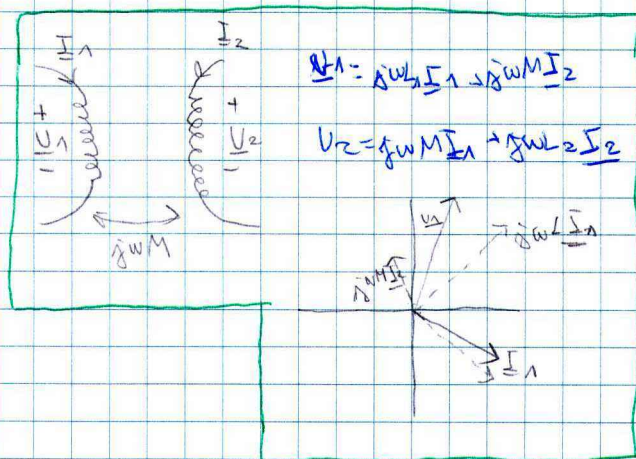 I1
I2
+ U1 -
+ U2 -
jωM
U1 = jωL1 I1 + jωM I2
U2 = jωM I1 + jωL2 I2
U1
jωL I1
jωM I2
I1